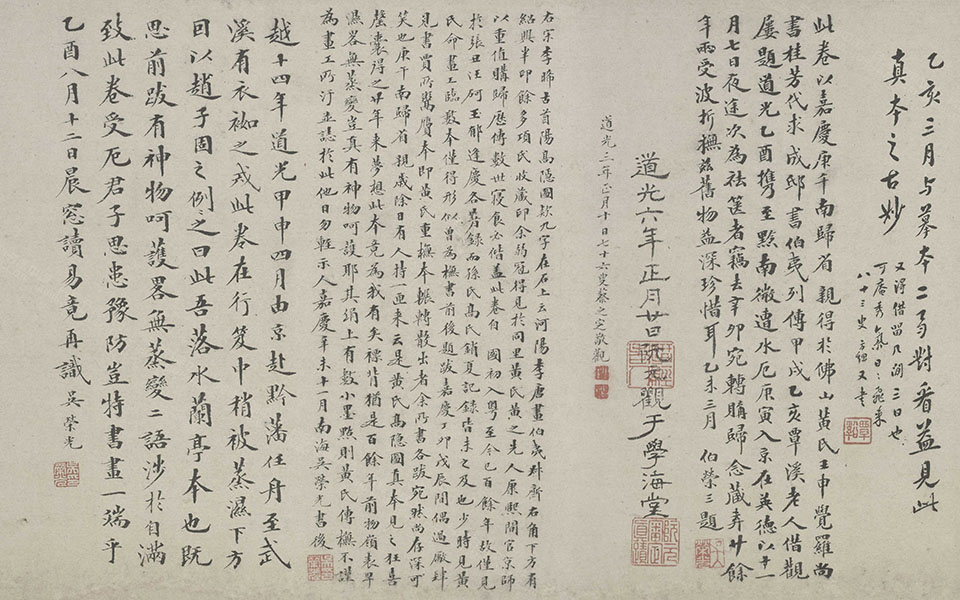 乙亥三月与摹本二弓對看益見此
真本之古妙
此卷以嘉慶庚午南歸省親得於佛山黃氏壬申覺羅尚
書桂芳代求成邸書伯夷列傳甲戌乙亥覃溪老人借觀
屢題道光乙酉攜至黔南徼遭水厄庚寅入京在英德以十一
月七日夜途次為祛篋者竊去辛卯宛轉購歸念藏弆廿餘
年雨受波折撫茲舊物益深珍惜耳乙未三月 伯榮三題
道光六年正月廿日阮元觀于學海堂
道光三年正月十日七十六叟蔡之定敬觀
右宋李晞古首陽高隱圖款九字在石上云河陽李唐畫伯夷叔齊右角下方有
紹興半印餘多項氏收藏印余弱冠得見於同里黃氏黃之先人康熙間官京師
以重值購歸歷傳數世寢食必偕蓋此卷自 國初入粵至今已百餘年故僅見
於張丑汪砢玉郁逢慶各著錄而孫氏高氏銷夏記錄皆未之及也少時見黃
氏命畫工臨數本僅得形似曾為橅書前後題跋嘉慶丁卯戊辰間偶過厰肆
見書賈所鬻贋本即黃氏重橅本輾轉散出者余所書各跋宛然尚存深可
笑也庚午南歸省親歲除日有人持一匣来云是黃氏高隱圖真本見之狂喜
罄囊得之廿年来夢想此本竟為我有矣褾背猶是百餘年前物嶺表旱
濕畧無蒸變豈真有神物呵護耶其絹上有數小墨點則黃氏傳橅不謹
為畫工所汙並誌於此他日勿輕示人嘉慶辛未十一月南海吳榮光書後
越十四年道光甲申四月由京赴黔藩任舟至武
溪有衣袽之戒此卷在行笈中稍被蒸濕下方
因以趙子固之例之曰此吾落水蘭亭本也既
思前跋有神物呵護畧無蒸變二語涉於自滿
致此卷受厄君子思患豫防豈特書畫一端乎
乙酉八月十二日晨窓讀易竟再識 吳榮光